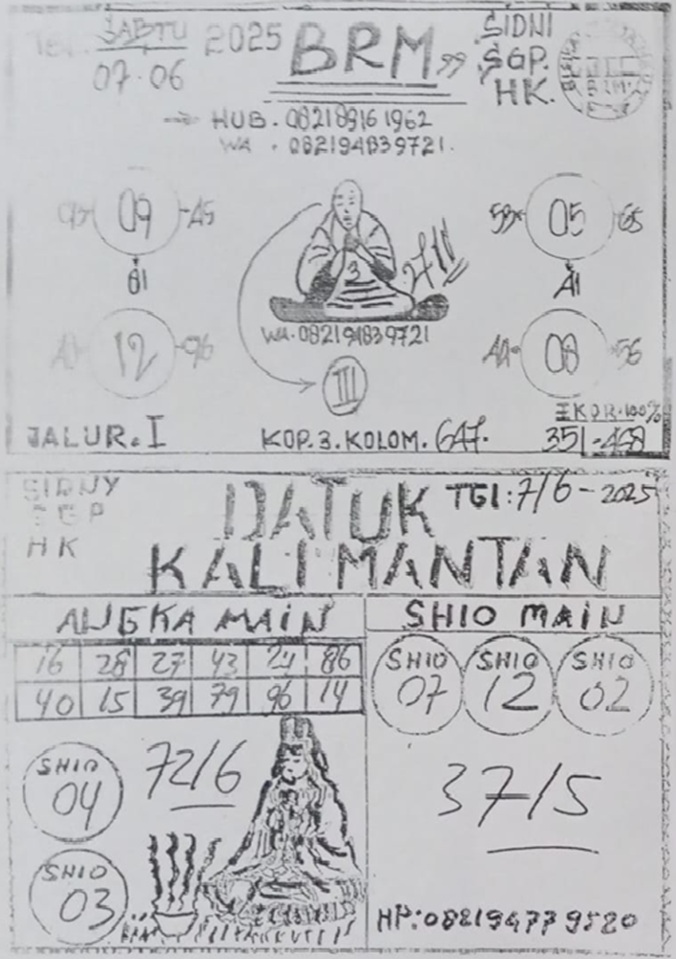 SABTU 2025
07-06
BRM
SIDNI
SGP.
HK.
HUB. 082189161962
WA . 082194839721.
09 -45
61
12 -96
3
2711
WA. 082194839721
III
05 65
A1
08 56
EKOR. 100%
JALUR. I
KOP. 3. KOLOM. 647.
351-468
SIDNY
SGP
HK
DATUK
KALIMANTAN
TGl: 7/6 - 2025
ANGKA MAIN
16 28 27 43 24 86
40 15 39 79 96 14
SHIO
04
72/6
SHIO
03
SHIO MAIN
SHIO
07
SHIO
12
SHIO
02
37/5
HP: 082194779520